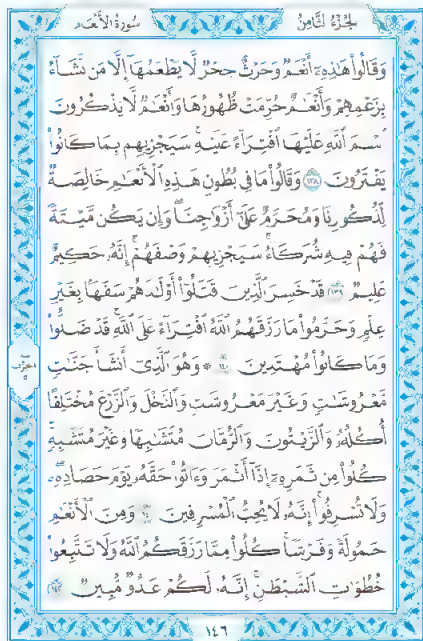 الجزء الثامن
سورة الأنعام
وَقَالُوا۟ هَٰذِهِۦٓ أَنْعَٰمٌ وَحَرْثٌ حِجْرٌ لَّا يَطْعَمُهَآ إِلَّا مَن نَّشَآءُ
بِزَعْمِهِمْ وَأَنْعَٰمٌ حُرِّمَتْ ظُهُورُهَا وَأَنْعَٰمٌ لَّا يَذْكُرُونَ
ٱسْمَ ٱللَّهِ عَلَيْهَا ٱفْتِرَآءً عَلَيْهِ ۚ سَيَجْزِيهِم بِمَا كَانُوا۟
يَفْتَرُونَ ١٣٨ وَقَالُوا۟ مَا فِى بُطُونِ هَٰذِهِ ٱلْأَنْعَٰمِ خَالِصَةٌ
لِّذُكُورِنَا وَمُحَرَّمٌ عَلَىٰٓ أَزْوَٰجِنَا ۖ وَإِن يَكُن مَّيْتَةً
فَهُمْ فِيهِ شُرَكَآءُ ۚ سَيَجْزِيهِمْ وَصْفَهُمْ ۚ إِنَّهُۥ حَكِيمٌ
عَلِيمٌ ١٣٩ قَدْ خَسِرَ ٱلَّذِينَ قَتَلُوٓا۟ أَوْلَٰدَهُمْ سَفَهًۢا بِغَيْرِ
عِلْمٍ وَحَرَّمُوا۟ مَا رَزَقَهُمُ ٱللَّهُ ٱفْتِرَآءً عَلَى ٱللَّهِ ۚ قَدْ ضَلُّوا۟
وَمَا كَانُوا۟ مُهْتَدِينَ ١٤٠ ۞ وَهُوَ ٱلَّذِىٓ أَنشَأَ جَنَّٰتٍ
مَّعْرُوشَٰتٍ وَغَيْرَ مَعْرُوشَٰتٍ وَٱلنَّخْلَ وَٱلزَّرْعَ مُخْتَلِفًا
أُكُلُهُۥ وَٱلزَّيْتُونَ وَٱلرُّمَّانَ مُتَشَٰبِهًا وَغَيْرَ مُتَشَٰبِهٍ ۚ
كُلُوا۟ مِن ثَمَرِهِۦٓ إِذَآ أَثْمَرَ وَءَاتُوا۟ حَقَّهُۥ يَوْمَ حَصَادِهِۦ ۖ
وَلَا تُسْرِفُوٓا۟ ۚ إِنَّهُۥ لَا يُحِبُّ ٱلْمُسْرِفِينَ ١٤١ وَمِنَ ٱلْأَنْعَٰمِ
حَمُولَةً وَفَرْشًا ۚ كُلُوا۟ مِمَّا رَزَقَكُمُ ٱللَّهُ وَلَا تَتَّبِعُوا۟
خُطُوَٰتِ ٱلشَّيْطَٰنِ ۚ إِنَّهُۥ لَكُمْ عَدُوٌّ مُّبِينٌ ١٤٢
١٤٦